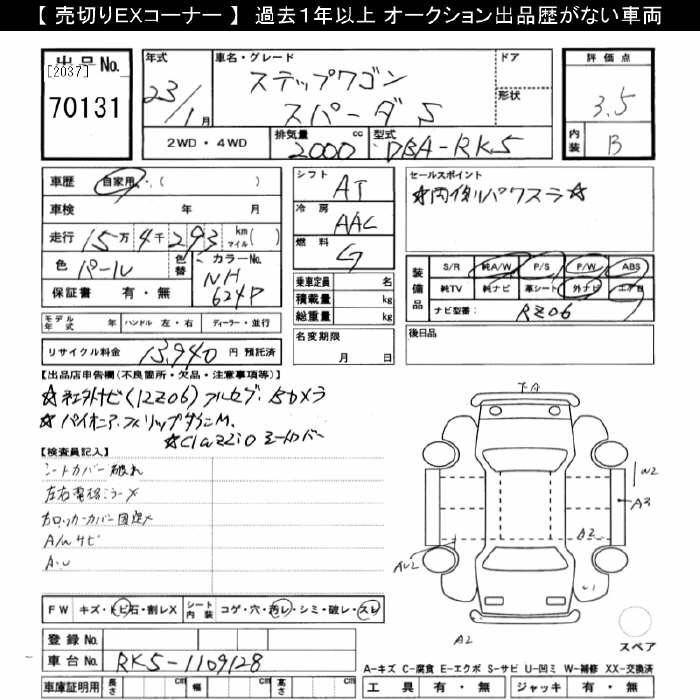 【 売切りEXコーナー 】 過去1年以上 オークション出品歴がない車両
出品No.
[2037]
70131
年式 23/1月
車名・グレード ステップワゴン スパーダS
ドア
形状
2WD・4WD
排気量 2000 cc
型式 DBA-RK5
評価点 3.5
内装 B
車歴 自家用・( )
車検 年 月
走行 15万4千293 km マイル( )
色 パール
色替
カラーNo. NH624P
保証書 有・無
シフト AT
冷房 AAC
燃料 G
乗車定員 名
積載量 kg
総重量 kg
セールスポイント
☆両側パワスラ☆
装備品
S/R 純A/W P/S P/W ABS
純TV 純ナビ 革シート 外ナビ エアB
ナビ型番: RZ06
モデル年式 年 ハンドル 左・右 ディーラー・並行
リサイクル料金 13,940 円 預託済
名変期限 月 日
後日品
【出品店申告欄(不良箇所・欠品・注意事項等)】
☆社外ナビ(RZ06)フルセグ.Bカメラ
☆パイオニア.フリップダウンM.
☆Clazzioシートカバー
【検査員記入】
シートカバー破れ
左右電格ミラー×
右ロッカーカバー固定×
A/mサビ
A・U
FA
W2
A3
A2
AU2
U1
A2
スペア
FW キズ・トビ石・割レX
シート内装 コゲ・穴・汚レ・シミ・破レ・スレ
登録No.
車台No. RK5-1109128
車庫証明用 長さ cm 幅 cm 高さ cm
A-キズ C-腐食 E-エクボ S-サビ U-凹ミ W-補修 XX-交換済
工具 有・無 ジャッキ 有・無